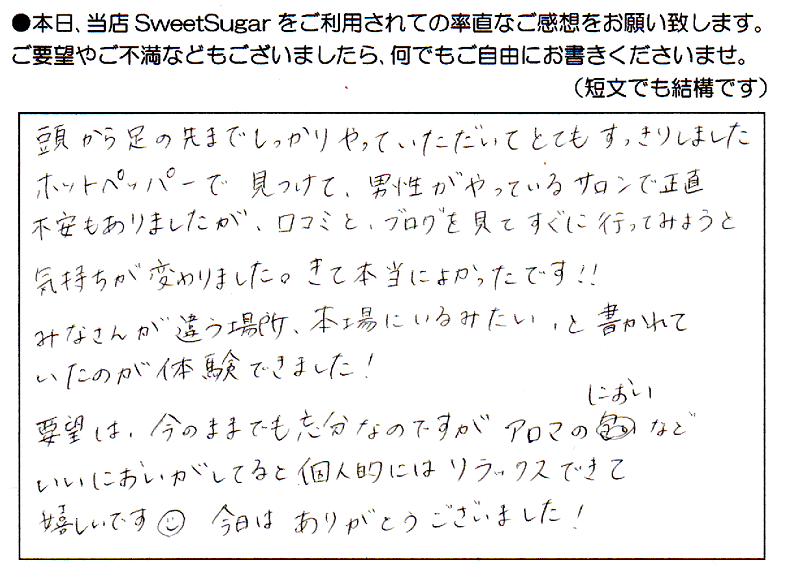 ●本日、当店 SweetSugar をご利用されての率直なご感想をお願い致します。
ご要望やご不満などもございましたら、何でもご自由にお書きくださいませ。
（短文でも結構です）
頭から足の先までしっかりやっていただいてとてもすっきりしました
ホットペッパーで見つけて、男性がやっているサロンで正直
不安もありましたが、口コミと、ブログを見てすぐに行ってみようと
気持ちが変わりました。きて本当によかったです!!
みなさんが違う場所、本場にいるみたい、と書かれて
いたのが体験できました!
におい
要望は、今のままでも充分なのですがアロマの など
いいにおいがしてると個人的にはリラックスできて
嬉しいです☺ 今日はありがとうございました!